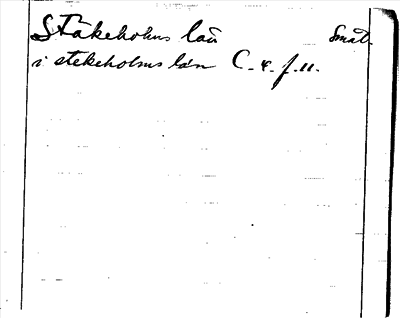 Stäkeholms län Smål.
i stekeholms län C. 4. f. 11.